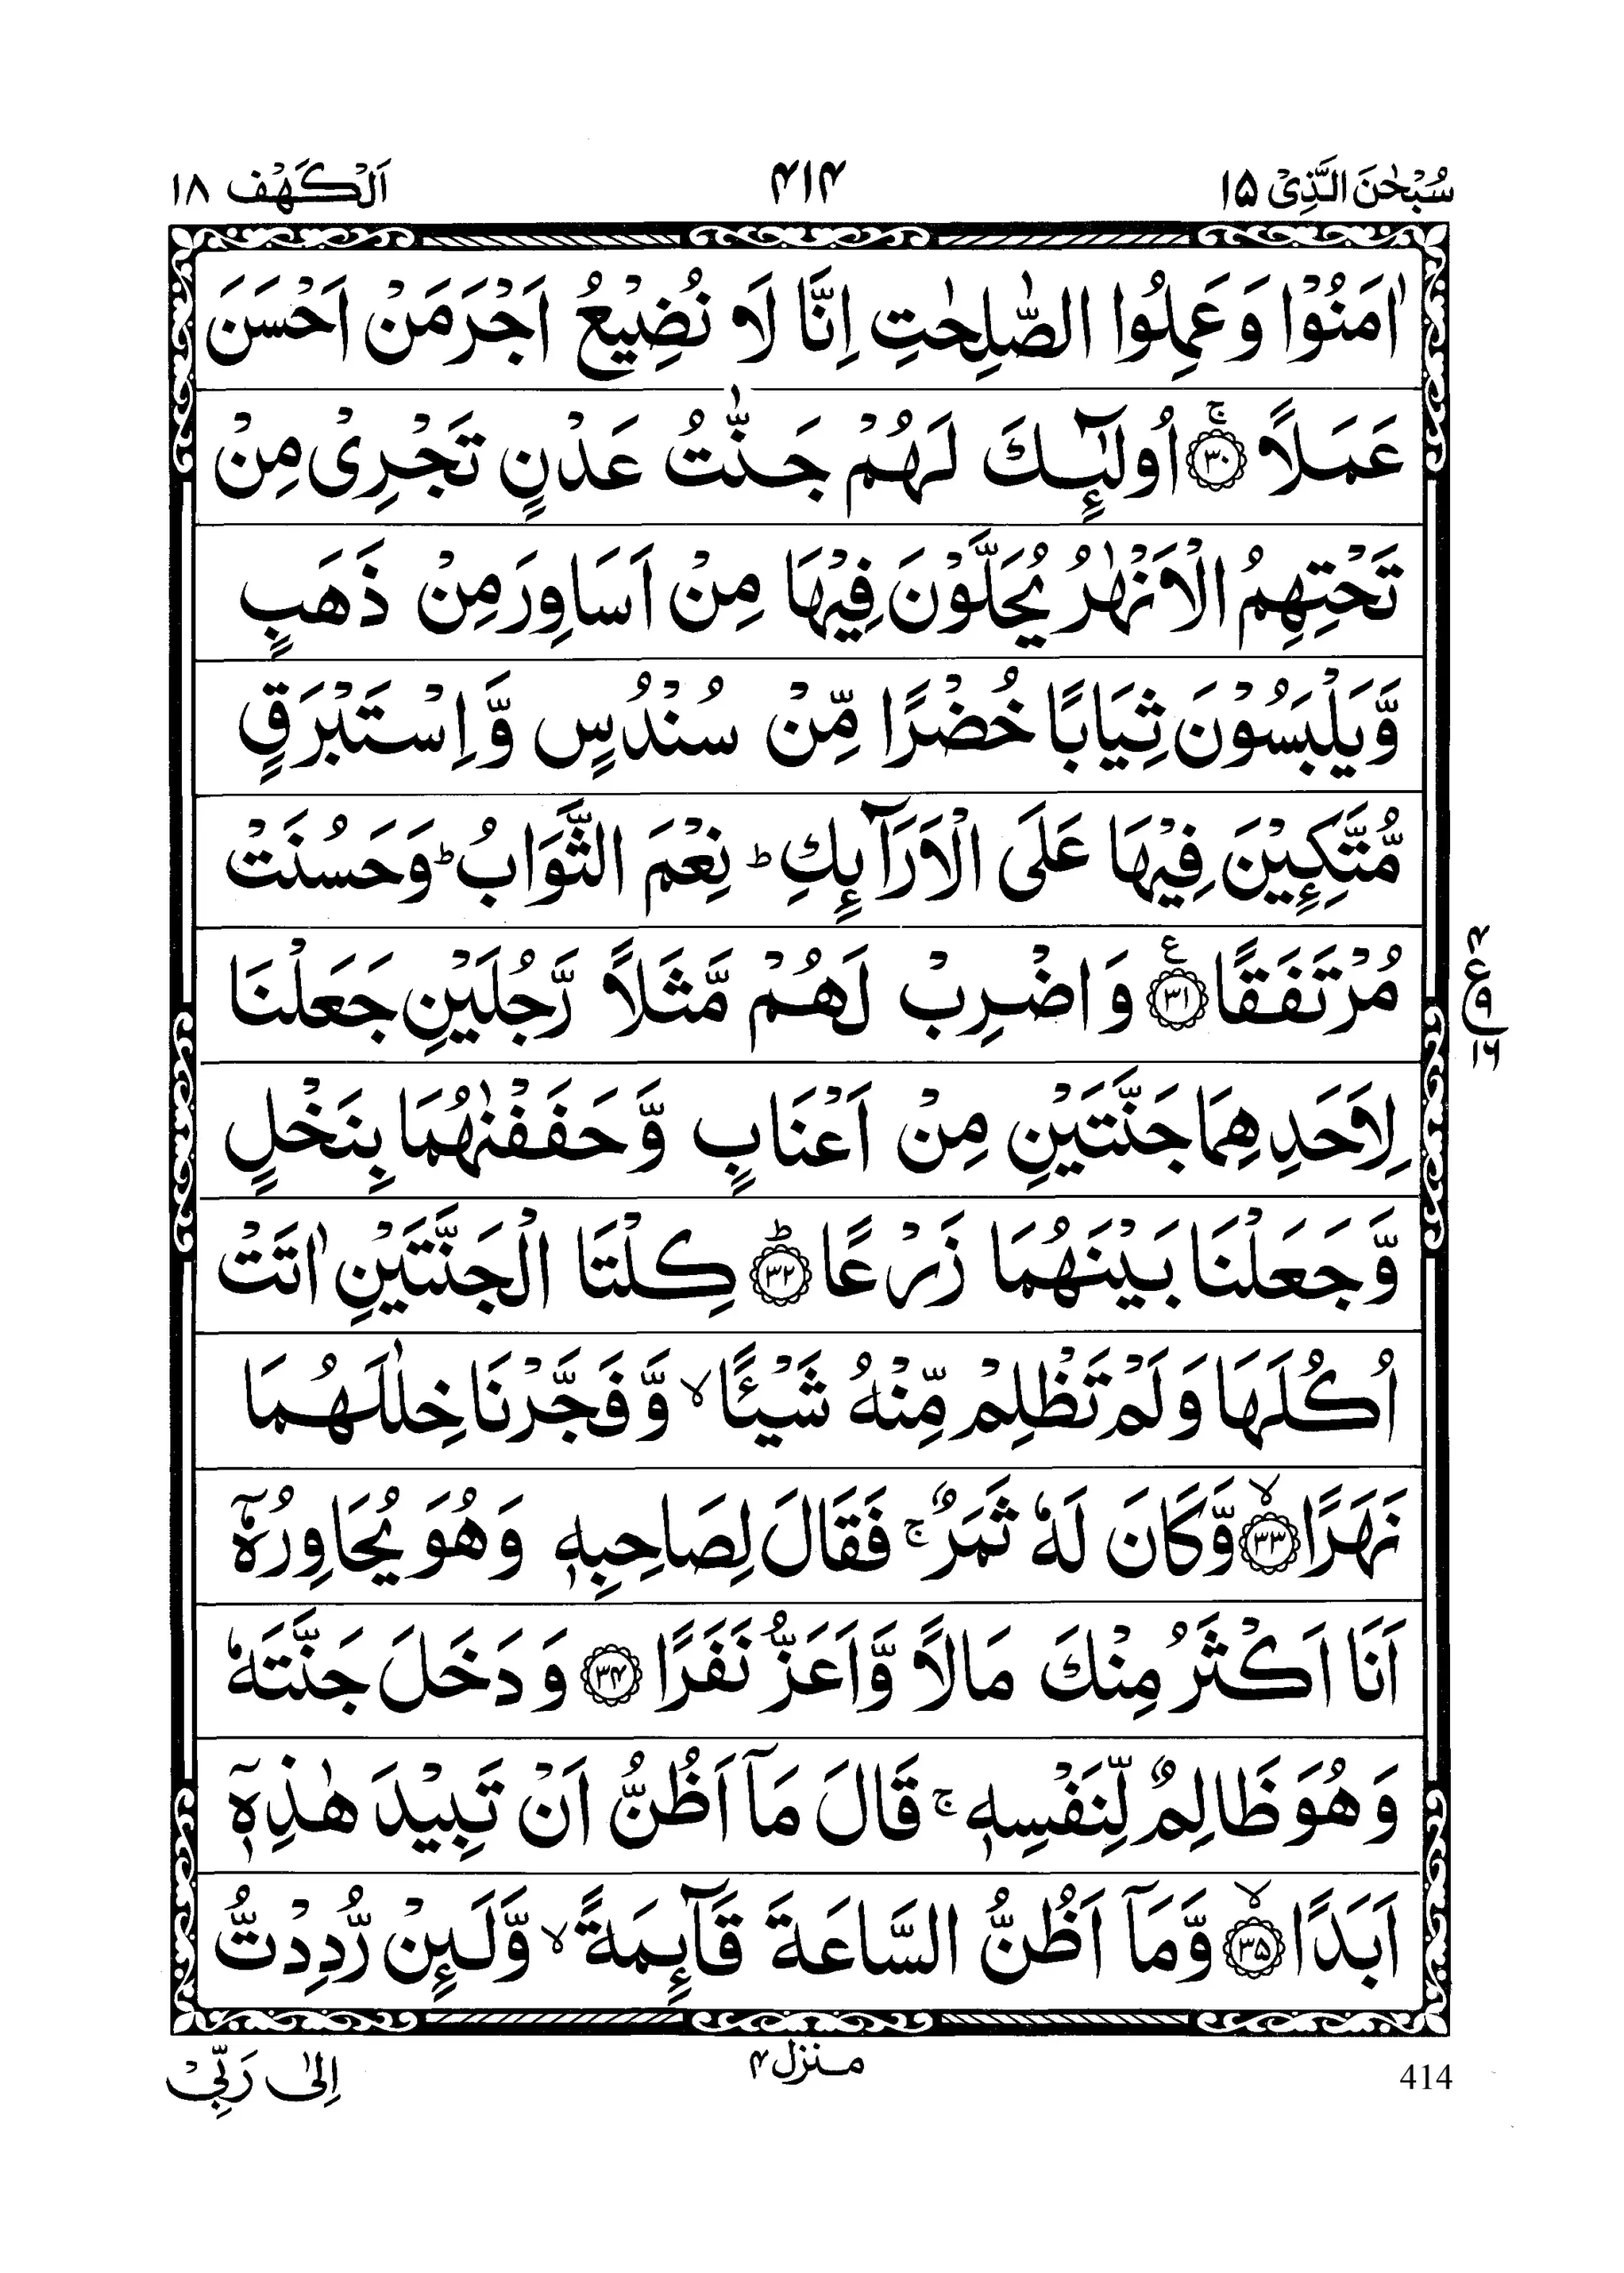 سُبْحٰنَ الَّذِیْ ۱۵ ۴۱۴ اَلْكَهْف ۱۸
اٰمَنُوْا وَعَمِلُوا الصّٰلِحٰتِ اِنَّا لَا نُضِیْعُ اَجْرَ مَنْ اَحْسَنَ
عَمَلًا ﴿۳۰﴾ۚ اُولٰٓئِكَ لَهُمْ جَنّٰتُ عَدْنٍ تَجْرِیْ مِنْ
تَحْتِهِمُ الْاَنْهٰرُ یُحَلَّوْنَ فِیْهَا مِنْ اَسَاوِرَ مِنْ ذَهَبٍ
وَّیَلْبَسُوْنَ ثِیَابًا خُضْرًا مِّنْ سُنْدُسٍ وَّاِسْتَبْرَقٍ
مُّتَّكِـِٕیْنَ فِیْهَا عَلَی الْاَرَآئِكِ ؕ نِعْمَ الثَّوَابُ ؕ وَحَسُنَتْ
مُرْتَفَقًا ﴿۳۱﴾ ع وَاضْرِبْ لَهُمْ مَّثَلًا رَّجُلَیْنِ جَعَلْنَا
ع ۴ ۹ ۱۶
لِاَحَدِهِمَا جَنَّتَیْنِ مِنْ اَعْنَابٍ وَّحَفَفْنٰهُمَا بِنَخْلٍ
وَّجَعَلْنَا بَیْنَهُمَا زَرْعًا ﴿۳۲﴾ؕ كِلْتَا الْجَنَّتَیْنِ اٰتَتْ
اُكُلَهَا وَلَمْ تَظْلِمْ مِّنْهُ شَیْئًا ۙ وَّفَجَّرْنَا خِلٰلَهُمَا
نَهَرًا ﴿۳۳﴾ۙ وَّكَانَ لَهٗ ثَمَرٌ ۚ فَقَالَ لِصَاحِبِهٖ وَهُوَ یُحَاوِرُهٗٓ
اَنَا اَكْثَرُ مِنْكَ مَالًا وَّاَعَزُّ نَفَرًا ﴿۳۴﴾ وَدَخَلَ جَنَّتَهٗ
وَهُوَ ظَالِمٌ لِّنَفْسِهٖ ۚ قَالَ مَاۤ اَظُنُّ اَنْ تَبِیْدَ هٰذِهٖۤ
اَبَدًا ﴿۳۵﴾ۙ وَّمَاۤ اَظُنُّ السَّاعَةَ قَآئِمَةً ۙ وَّلَئِنْ رُّدِدْتُّ
414 منزل ۴ اِلٰی رَبِّیْ